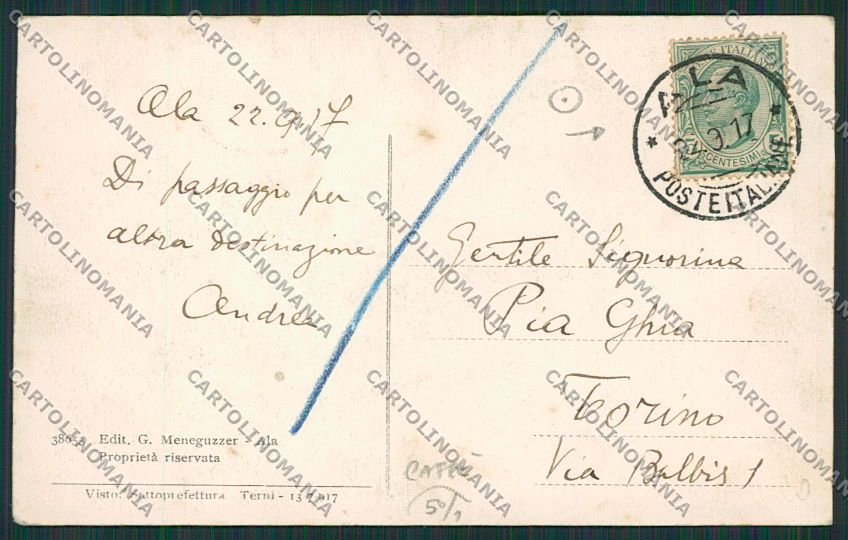 Ala 22.9.17
Di passaggio per
altra destinazione
Andrea
38655 Edit. G. Meneguzzer - Ala
Proprietà riservata
Visto: Sottoprefettura Terni - 13 7 917
POSTE ITALIANE
CENTESIMI
ALA
9.17
POSTE ITALIANE
Gentile Signorina
Pia Ghia
Torino
Via Balbis 1
CARTOLINOMANIA